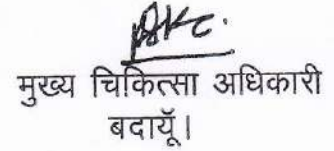 मुख्य चिकित्सा अधिकारी
बदायूँ।